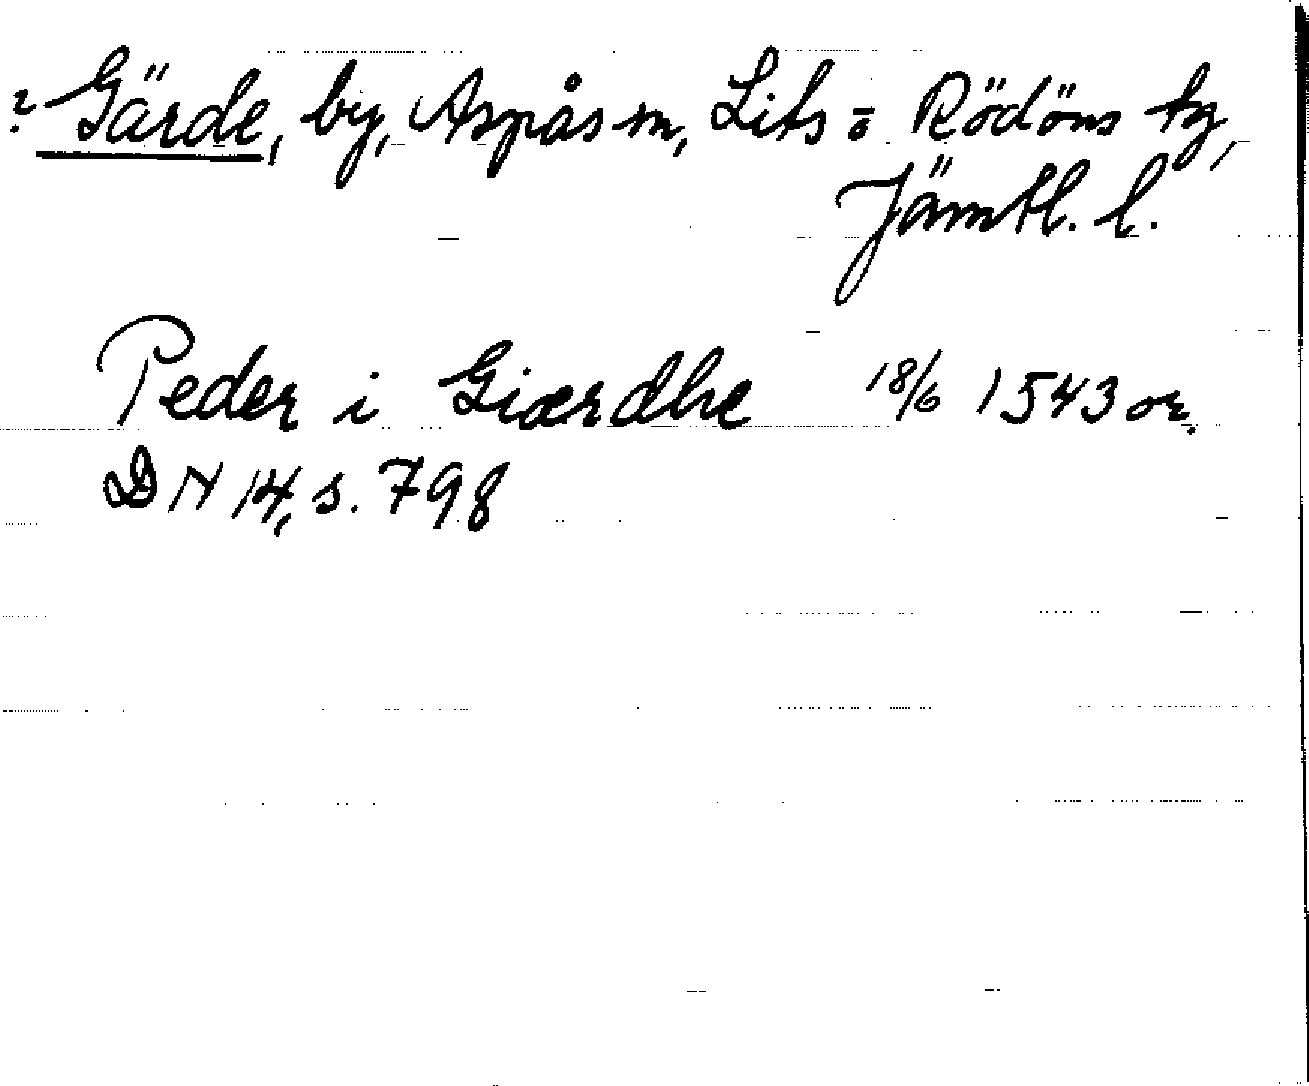 ? Gärde, by, Aspås sn, Lits o Rödöns tg,
Jämtl. l.
Peder i Giærdhe 18/6 1543 or.
DN 14, s. 798